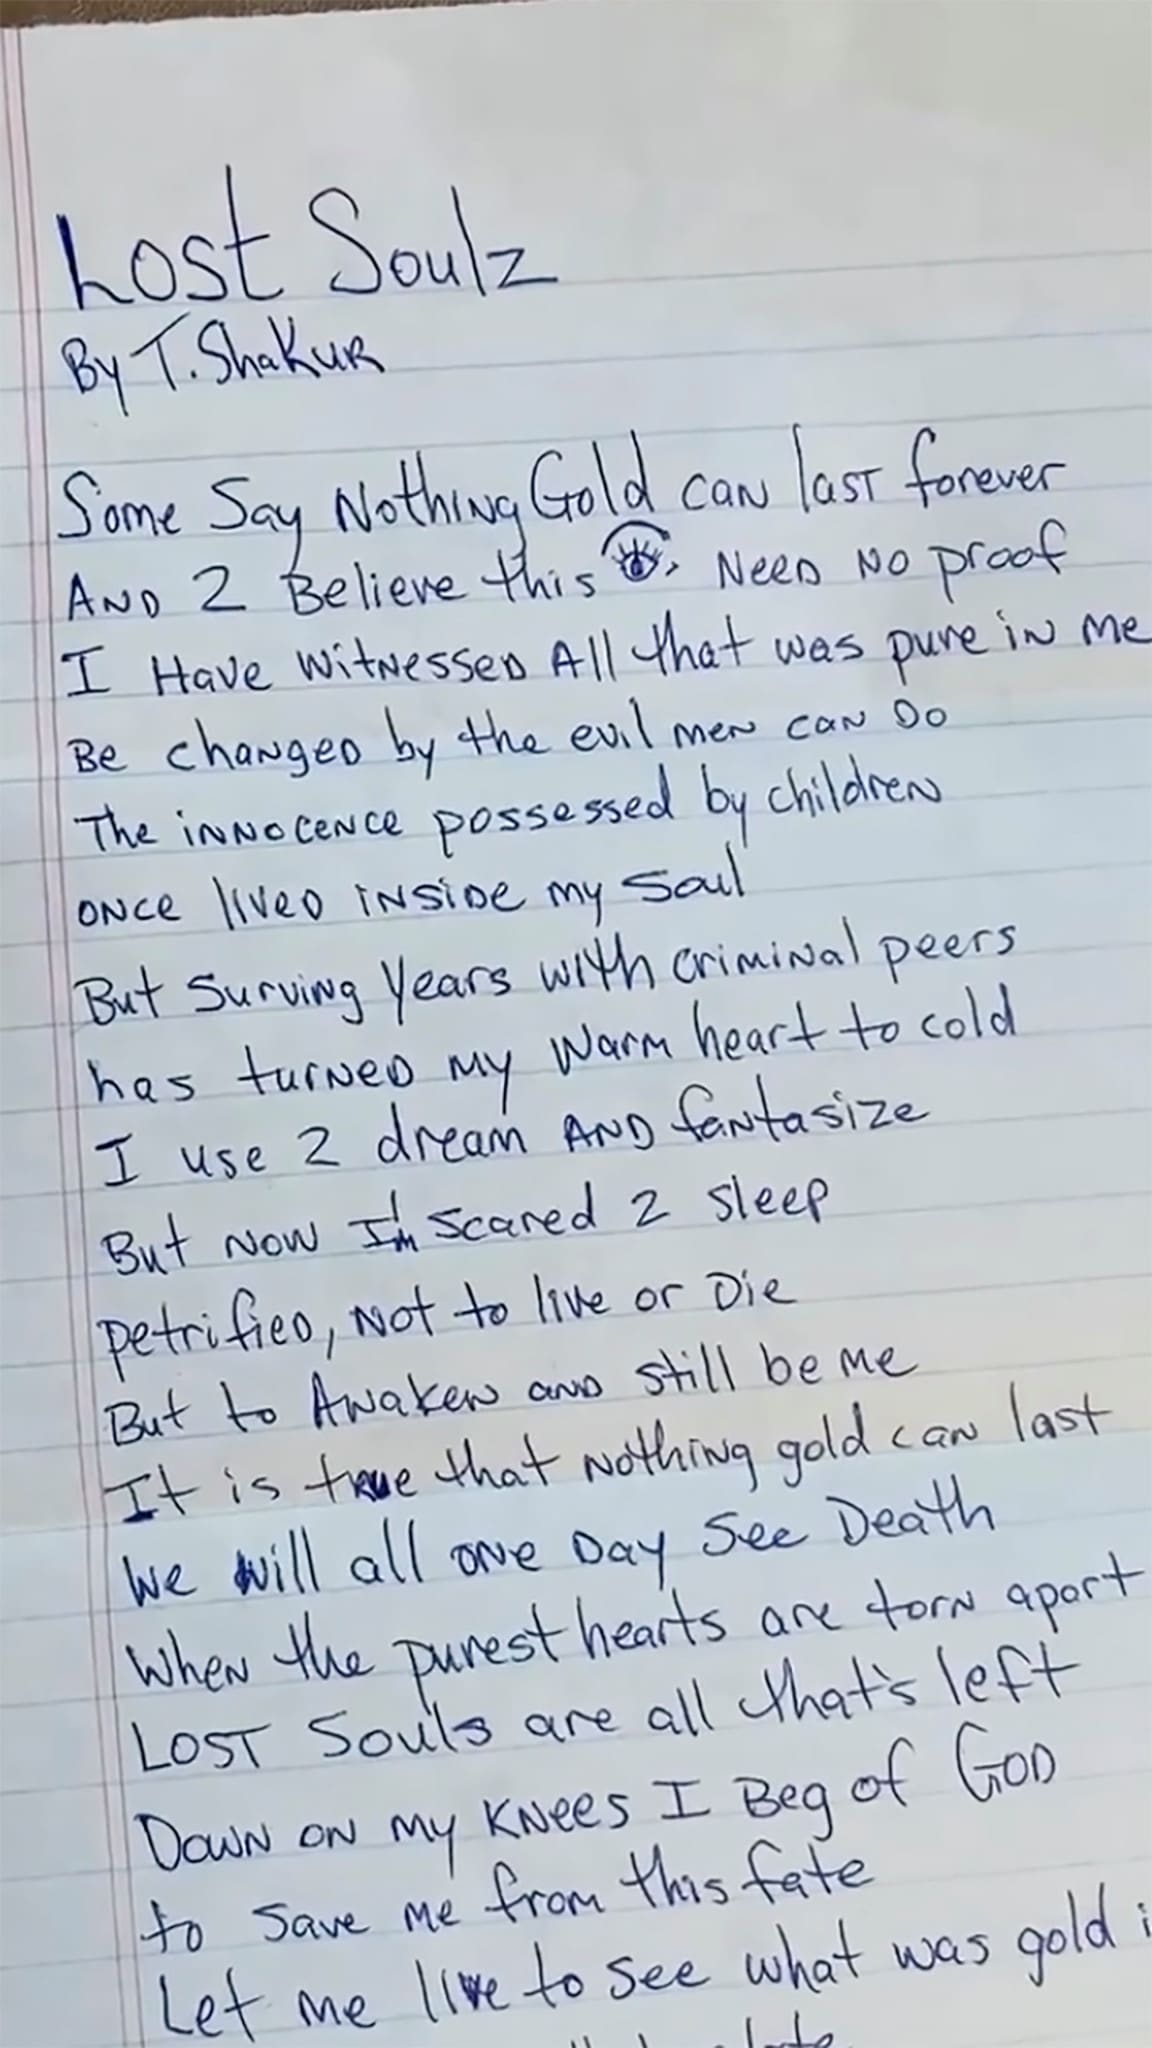 Lost Soulz
By T. Shakur
Some Say Nothing Gold can last forever
AND 2 Believe this 👁, NEED NO proof
I Have witnessed All that was pure in me
Be changed by the evil men can Do
The innocence possessed by children
once lived inside my soul
But Surving years with criminal peers
has turned my warm heart to cold
I use 2 dream AND fantasize
But now I'm scared 2 sleep
petrified, Not to live or Die
But to Awaken and still be me
It is true that nothing gold can last
We will all one Day See Death
When the purest hearts are torn apart
LOST Souls are all that's left
Down on my knees I Beg of GOD
to save me from this fate
Let me live to see what was gold i
late